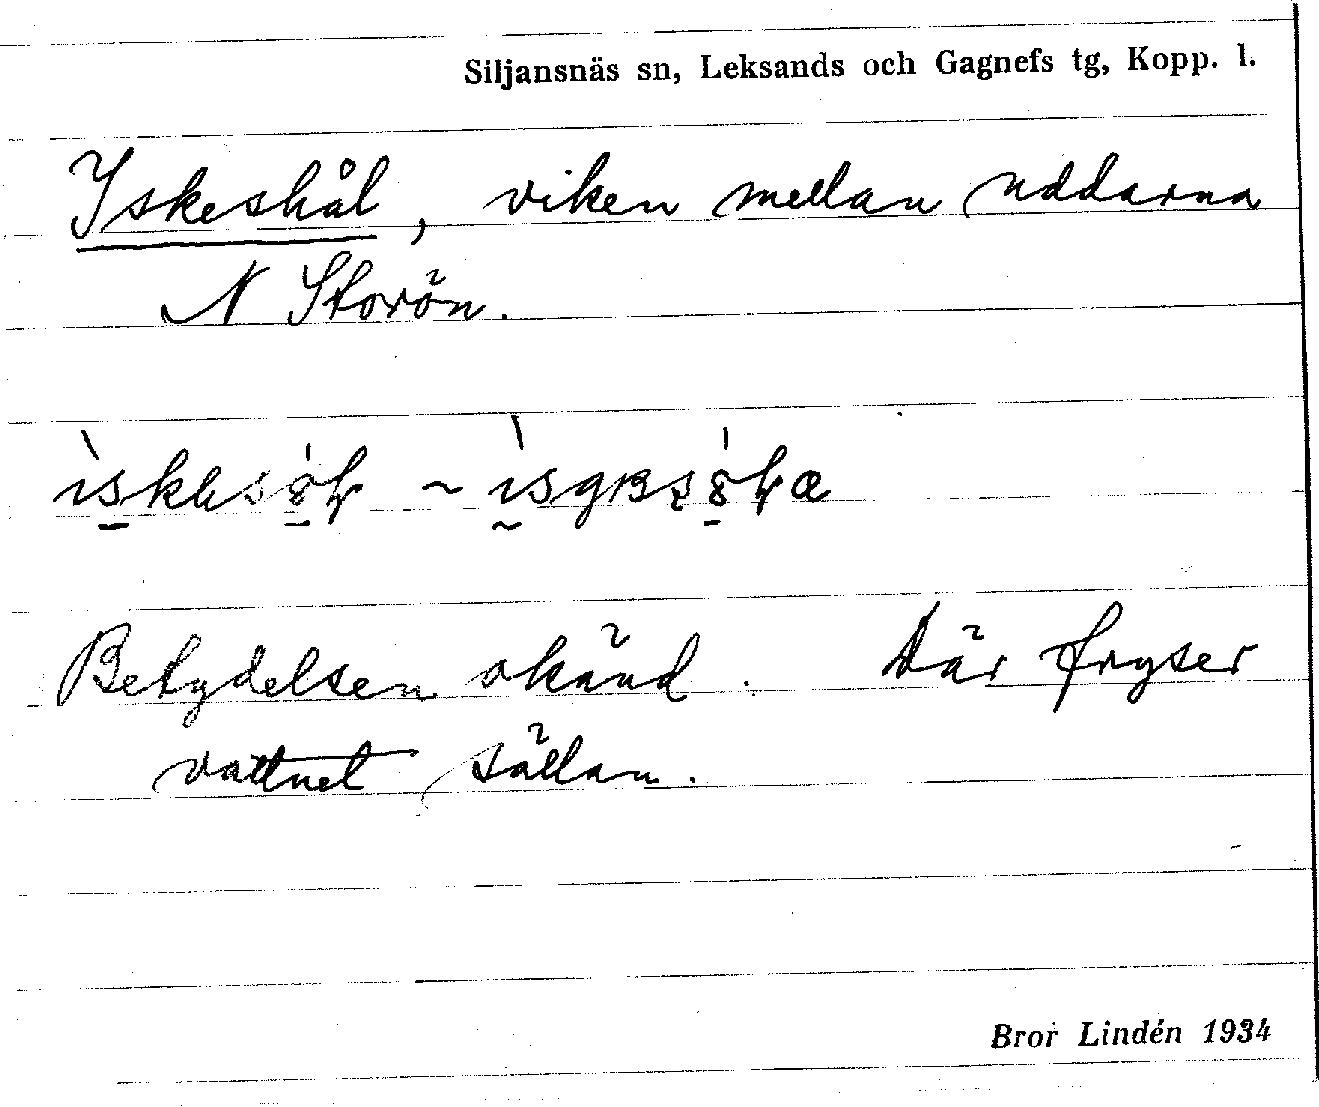 Siljansnäs sn, Leksands och Gagnefs tg, Kopp. l.
Iskeshål, viken mellan uddarna
N Storön.
Betydelsen okänd. Där fryser
vattnet sällan.
Bror Lindén 1934